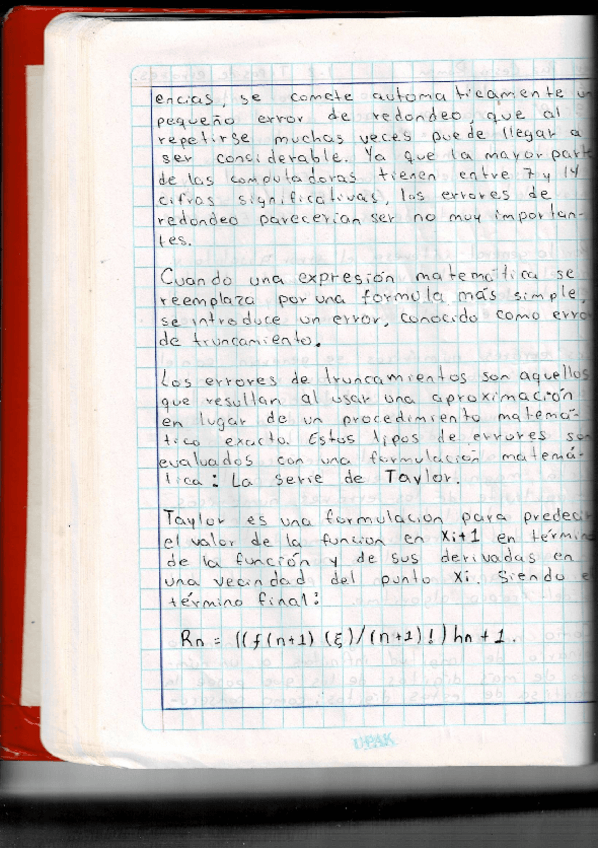 encias, se comete automaticamente un
pequeño error de redondeo, que al
repetirse muchas veces puede llegar a
ser conciderable. Ya que la mayor part
de las computadoras tienen entre 7 y 14
cifras significativas, los errores de
redondeo parecerían ser no muy importan-
tes.
Cuando una expresión matemática se
reemplaza por una formula más simple,
se introduce un error, conocido como erro
de truncamiento.
Los errores de truncamientos son aquellos
que resultan al usar una aproximación
en lugar de un procedimiento matemá-
tico exacto. Estos tipos de errores son
evaluados con una formulación matemá-
tica: La serie de Taylor.
Taylor es una formulacion para predecir
el valor de la funcion en Xi+1 en términ
de la función y de sus derivadas en
una vecindad del punto Xi. Siendo e
término final:
Rn = ((f(n+1) (ξ)/(n+1)!) hn + 1.
UPAK